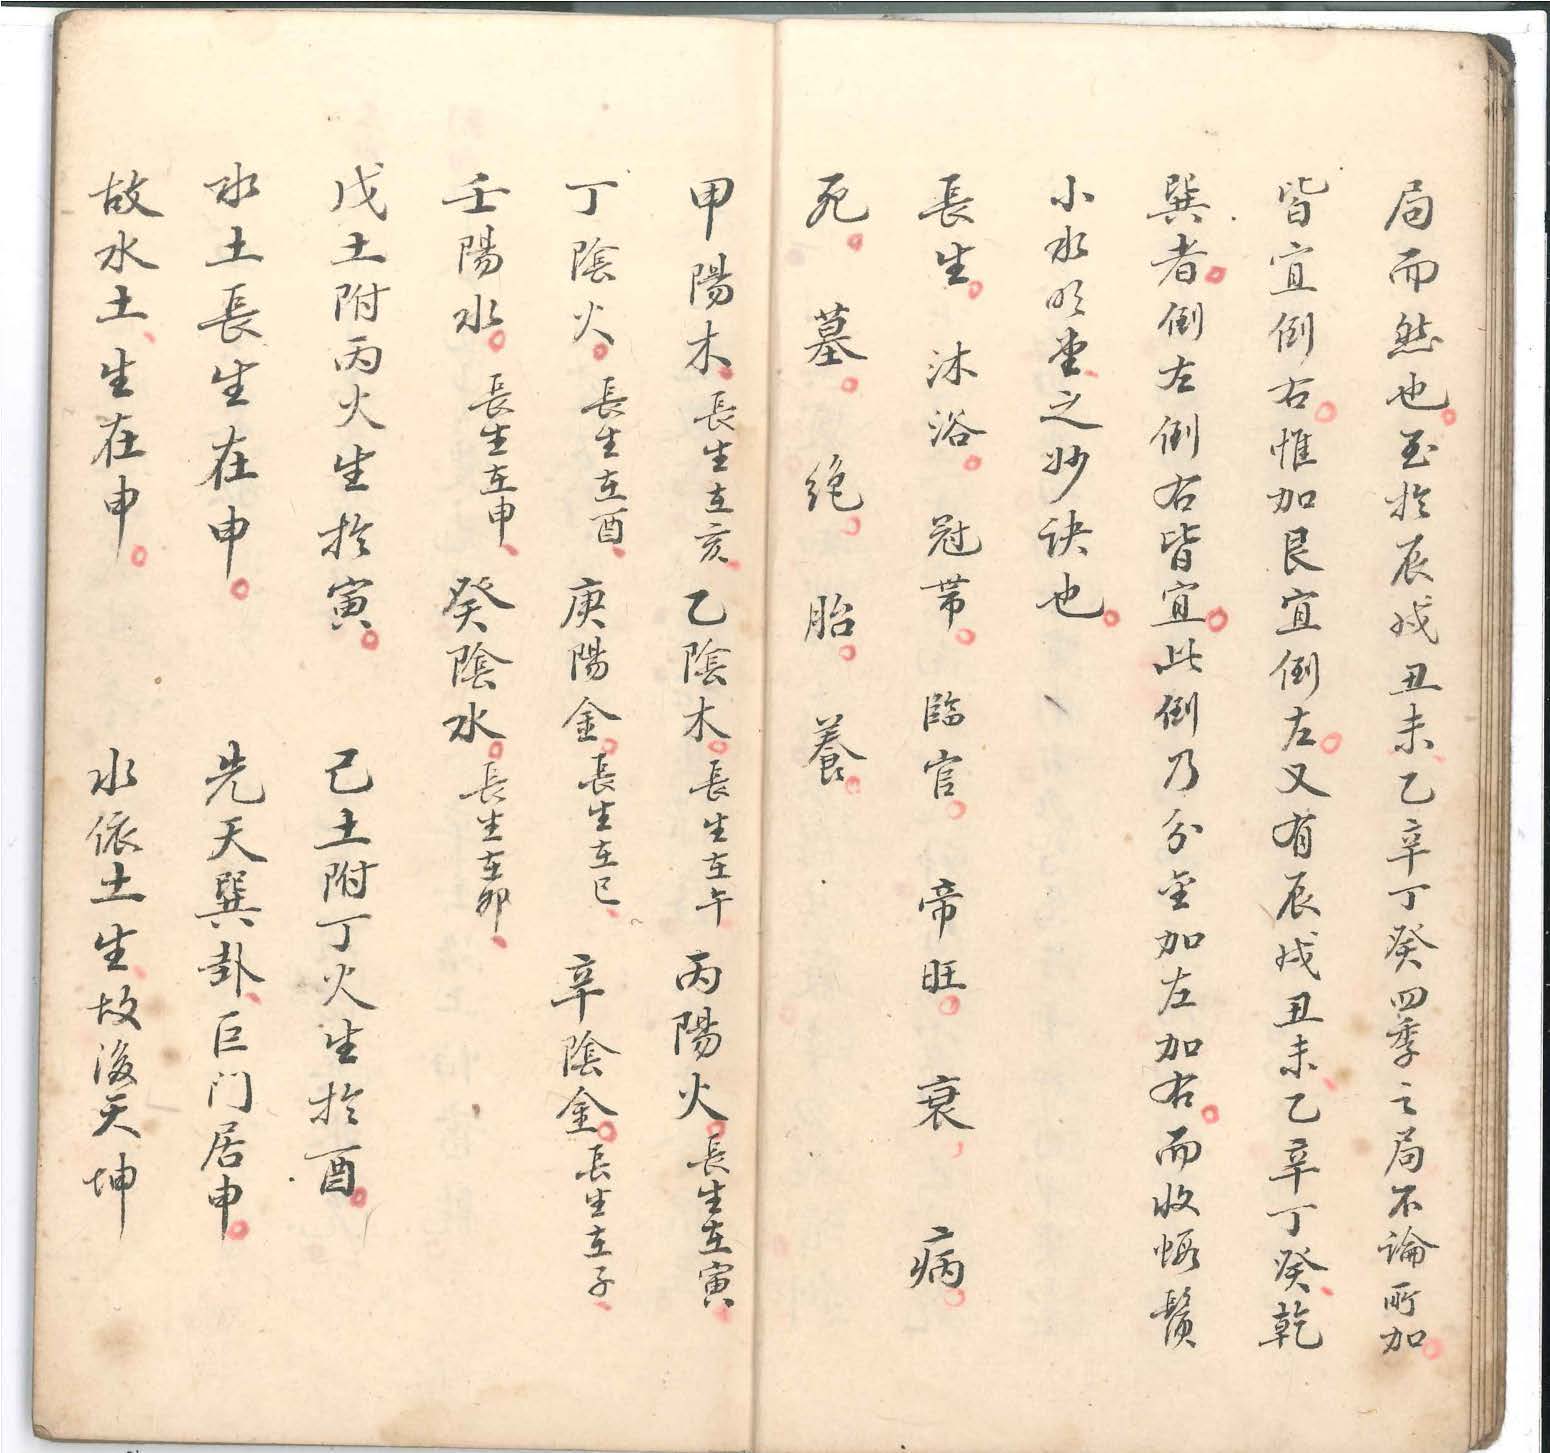 局而然也。至於辰戌丑未、乙辛丁癸四季之局不論所加。
皆宜倒右。惟加艮宜倒左。又有辰戌丑未、乙辛丁癸、乾
巽者。倒左倒右皆宜。此倒乃分金加左加右。而收蝦鬚
小水明堂、之妙訣也。
長生。沐浴。冠帶。臨官。帝旺。衰、病。
死。墓。絕。胎。養。
甲陽木。長生在亥、乙陰木。長生在午、丙陽火。長生在寅、
丁陰火。長生在酉、庚陽金。長生在巳、辛陰金。長生在子、
壬陽水。長生在申、癸陰水。長生在卯、
戊土附丙火生於寅。己土附丁火生於酉。
水土長生在申。先天巽卦、巨门居申。
故水土、生在申。水依土生、故後天坤